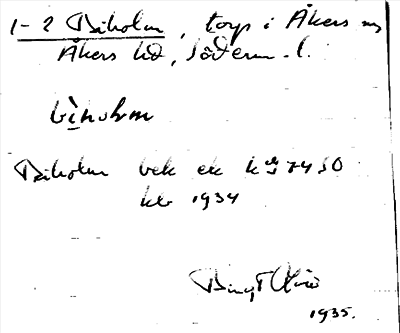 1-2 Biholm, torp i Åkers sn
Åkers hd, Söderm. l.
bìholm
Biholm bek ek kbl 7450
kb 1934
Bengt
1935.